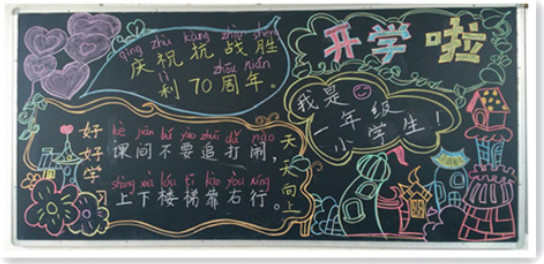 qìng zhù kàng zhàn shèng
庆祝抗战胜
lì zhōu nián
利70周年。
开学啦
我是
一年级
小学生!
好好学
kè jiān bú yào zhuī dǎ nào
课间不要追打闹,
shàng xià lóu tī kào yòu xíng
上下楼梯靠右行。
天天向上